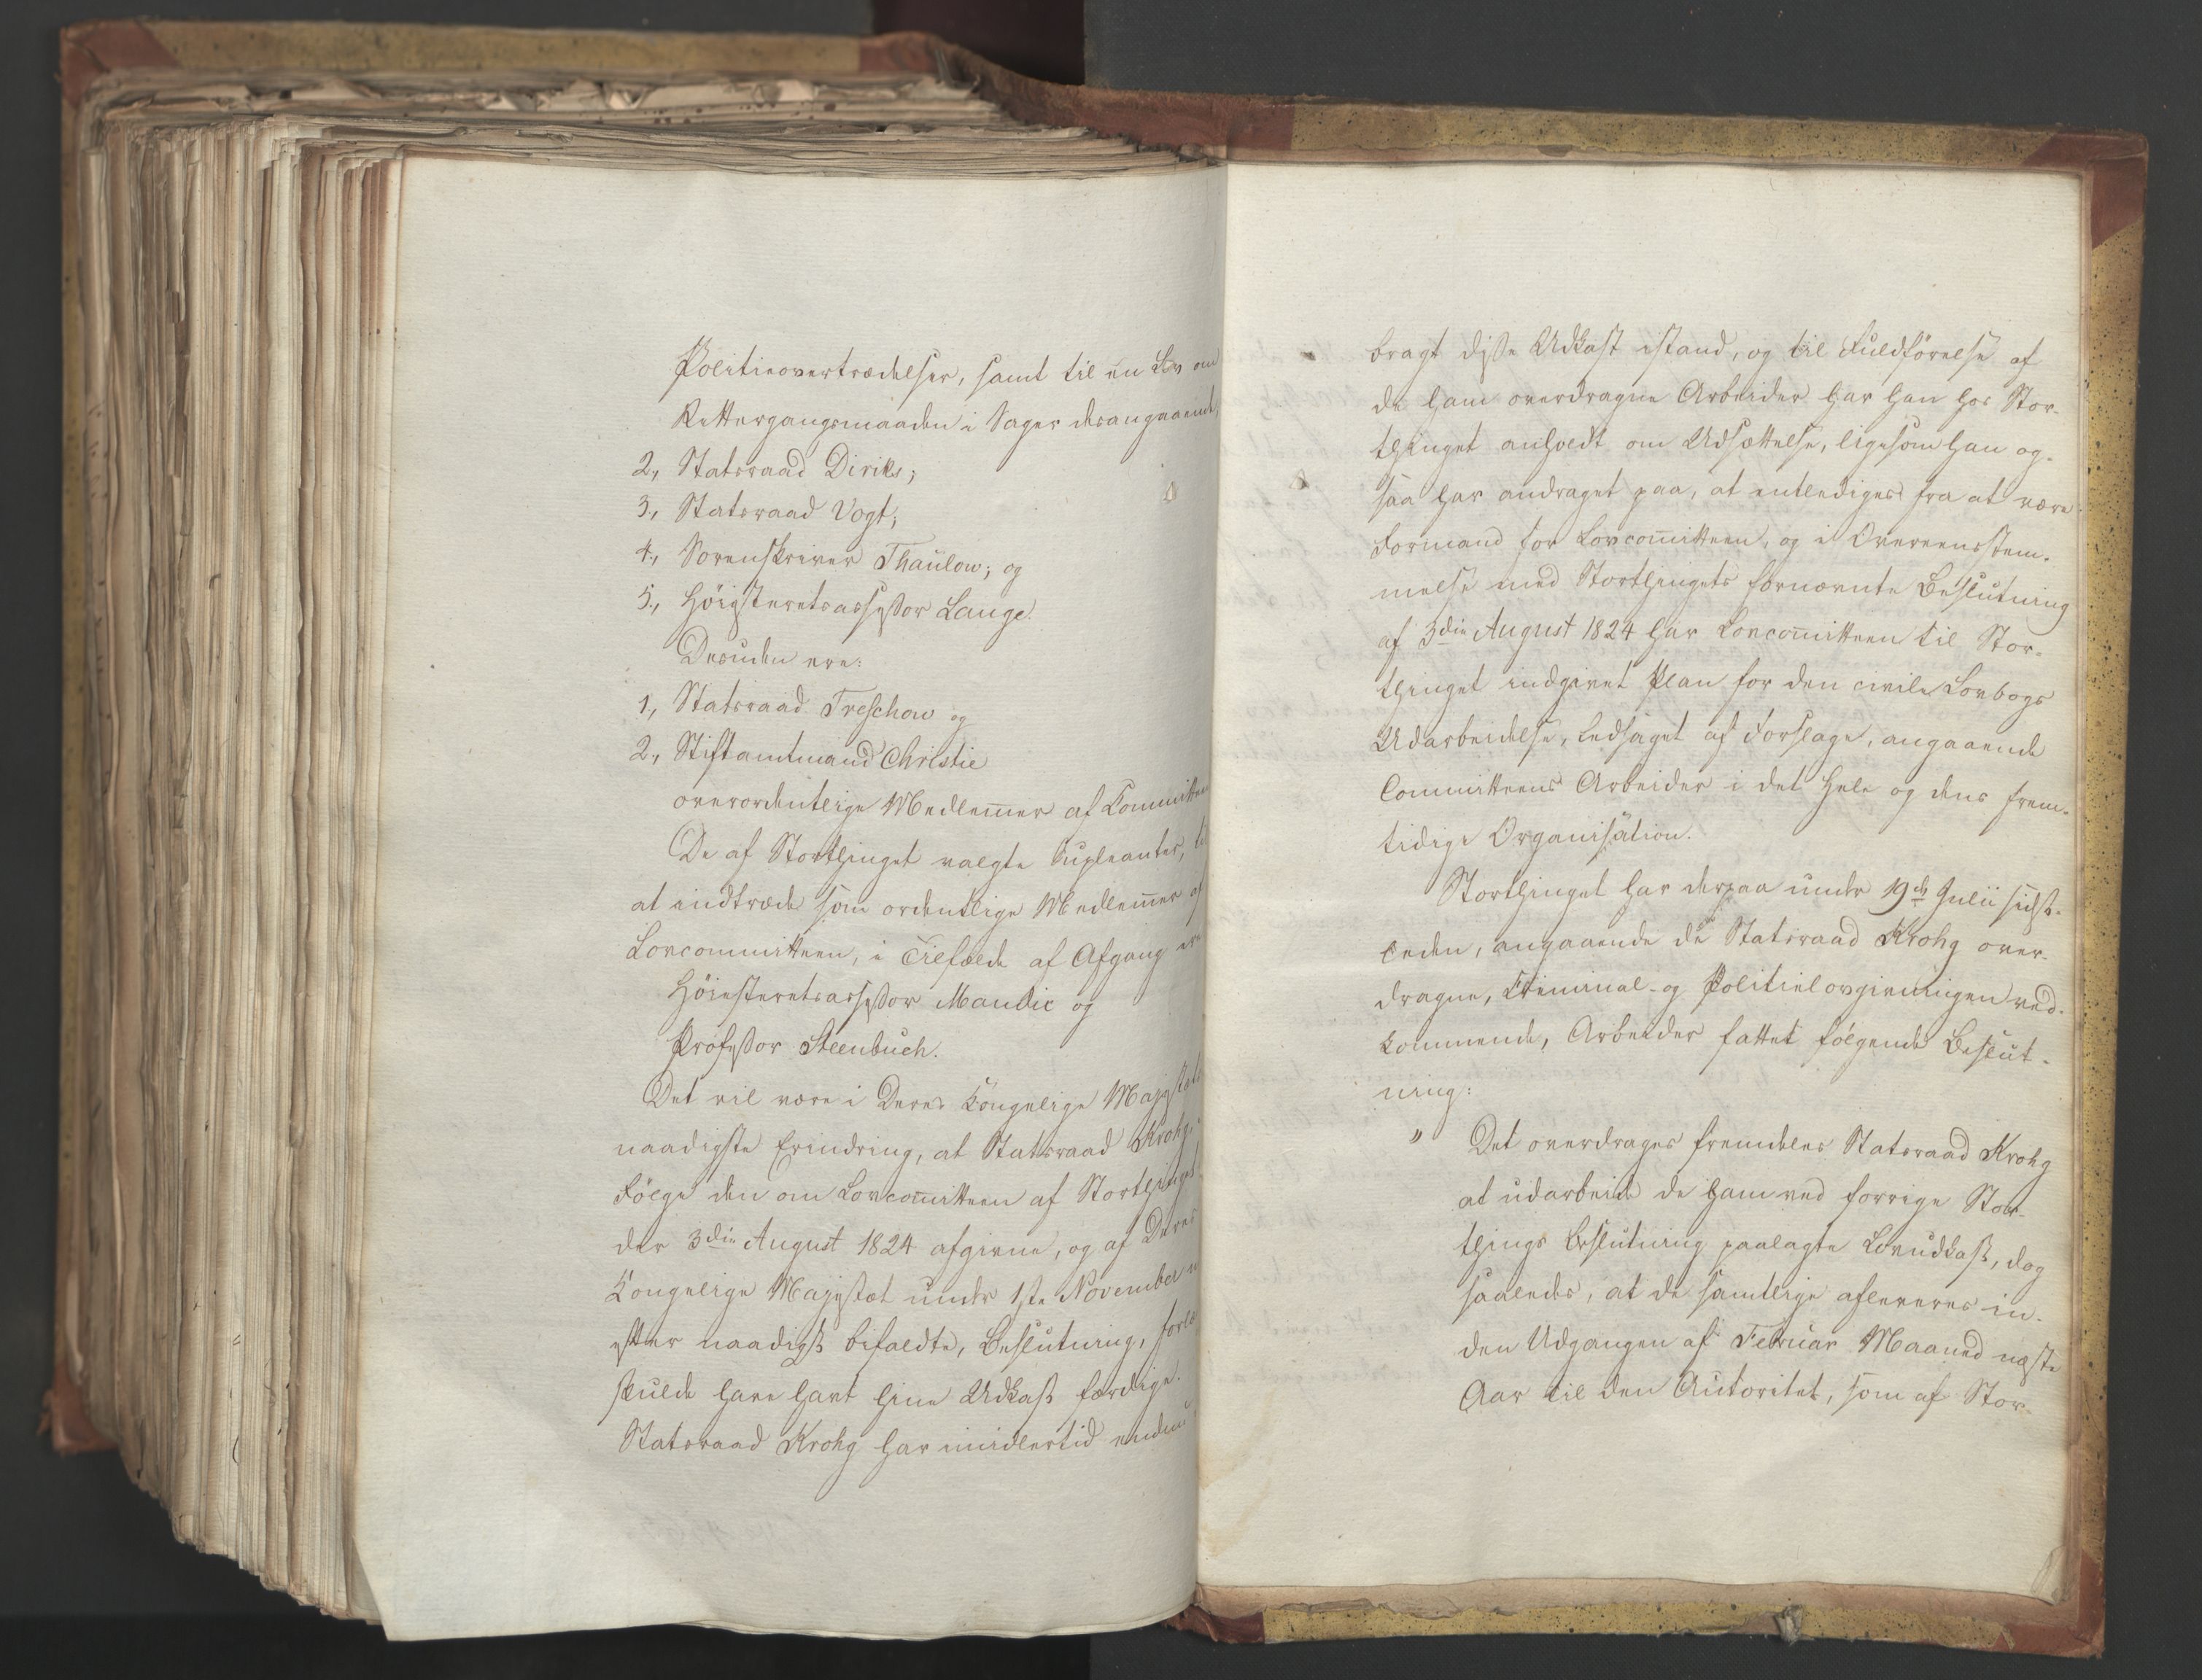 Politieovertrædelser, samt til en Lov om
Rettergangsmaaden i Sager desangaaende,
2, Statsraad Diriks;
3, Statsraad Vogt;
4, Sorenskriver Thaulow; og
5, Höiesteretsassessor Lange.
Desuden ere:
1, Statsraad Treschow og
2, Stiftamtmand Christie
overordentlige Medlem̄er af Committeen
De af Storthinget valgte Supleanter, til
at indtræde som ordentlige Medlem̄er af
Lovcommitteen, i Tilfælde af Afgang ere
Höiesteretsassessor Mandix og
Professor Steenbuch.
Det vil være i Deres Kongelige Majestæts
naadigste Erindring, at Statsraad Krohg,
Fölge den om Lovcom̄itteen af Storthinget
der 3die August 1824 afgivne, og af Deres
Kongelige Majestæt under 1ste November
efter naadigst bifaldte, Beslutning,
skulde have havt hine Udkast færdige.
Statsraad Krohg har imidlertid endnu
bragt disse Udkast istand, og til Fuldförelse af
de ham overdragne Arbeider har han hos Stor-
thinget anholdt om Udsættelse, ligesom han og-
saa har andraget paa, at entlediges fra at være
Formand for Lovcom̄itteen, og i Overeensstem-
melse med Storthingets fornævnte Beslutning
af 3die August 1824 har Lovcom̄itteen til Stor-
thinget indgivet Plan for den civile Lovbogs
Udarbeidelse, ledsaget af Forslage, angaaende
Committeens Arbeider i det Hele og dens frem-
tidige Organisation.
Storthinget har derpaa under 19de Julii sidst-
leden, angaaende de Statsraad Krohg over-
dragne, Criminal- og Politielovgivningen ved-
kommende, Arbeider fattet fölgende Beslut-
ning:
" Det overdrages fremdeles Statsraad Krohg
at udarbeide de ham ved forrige Stor-
things Beslutning paalagte Lovudkast, dog
saaledes, at de samtlige afleveres in-
den Udgangen af Februar Maaned næste
Aar til den Autoritet, som af Stor-